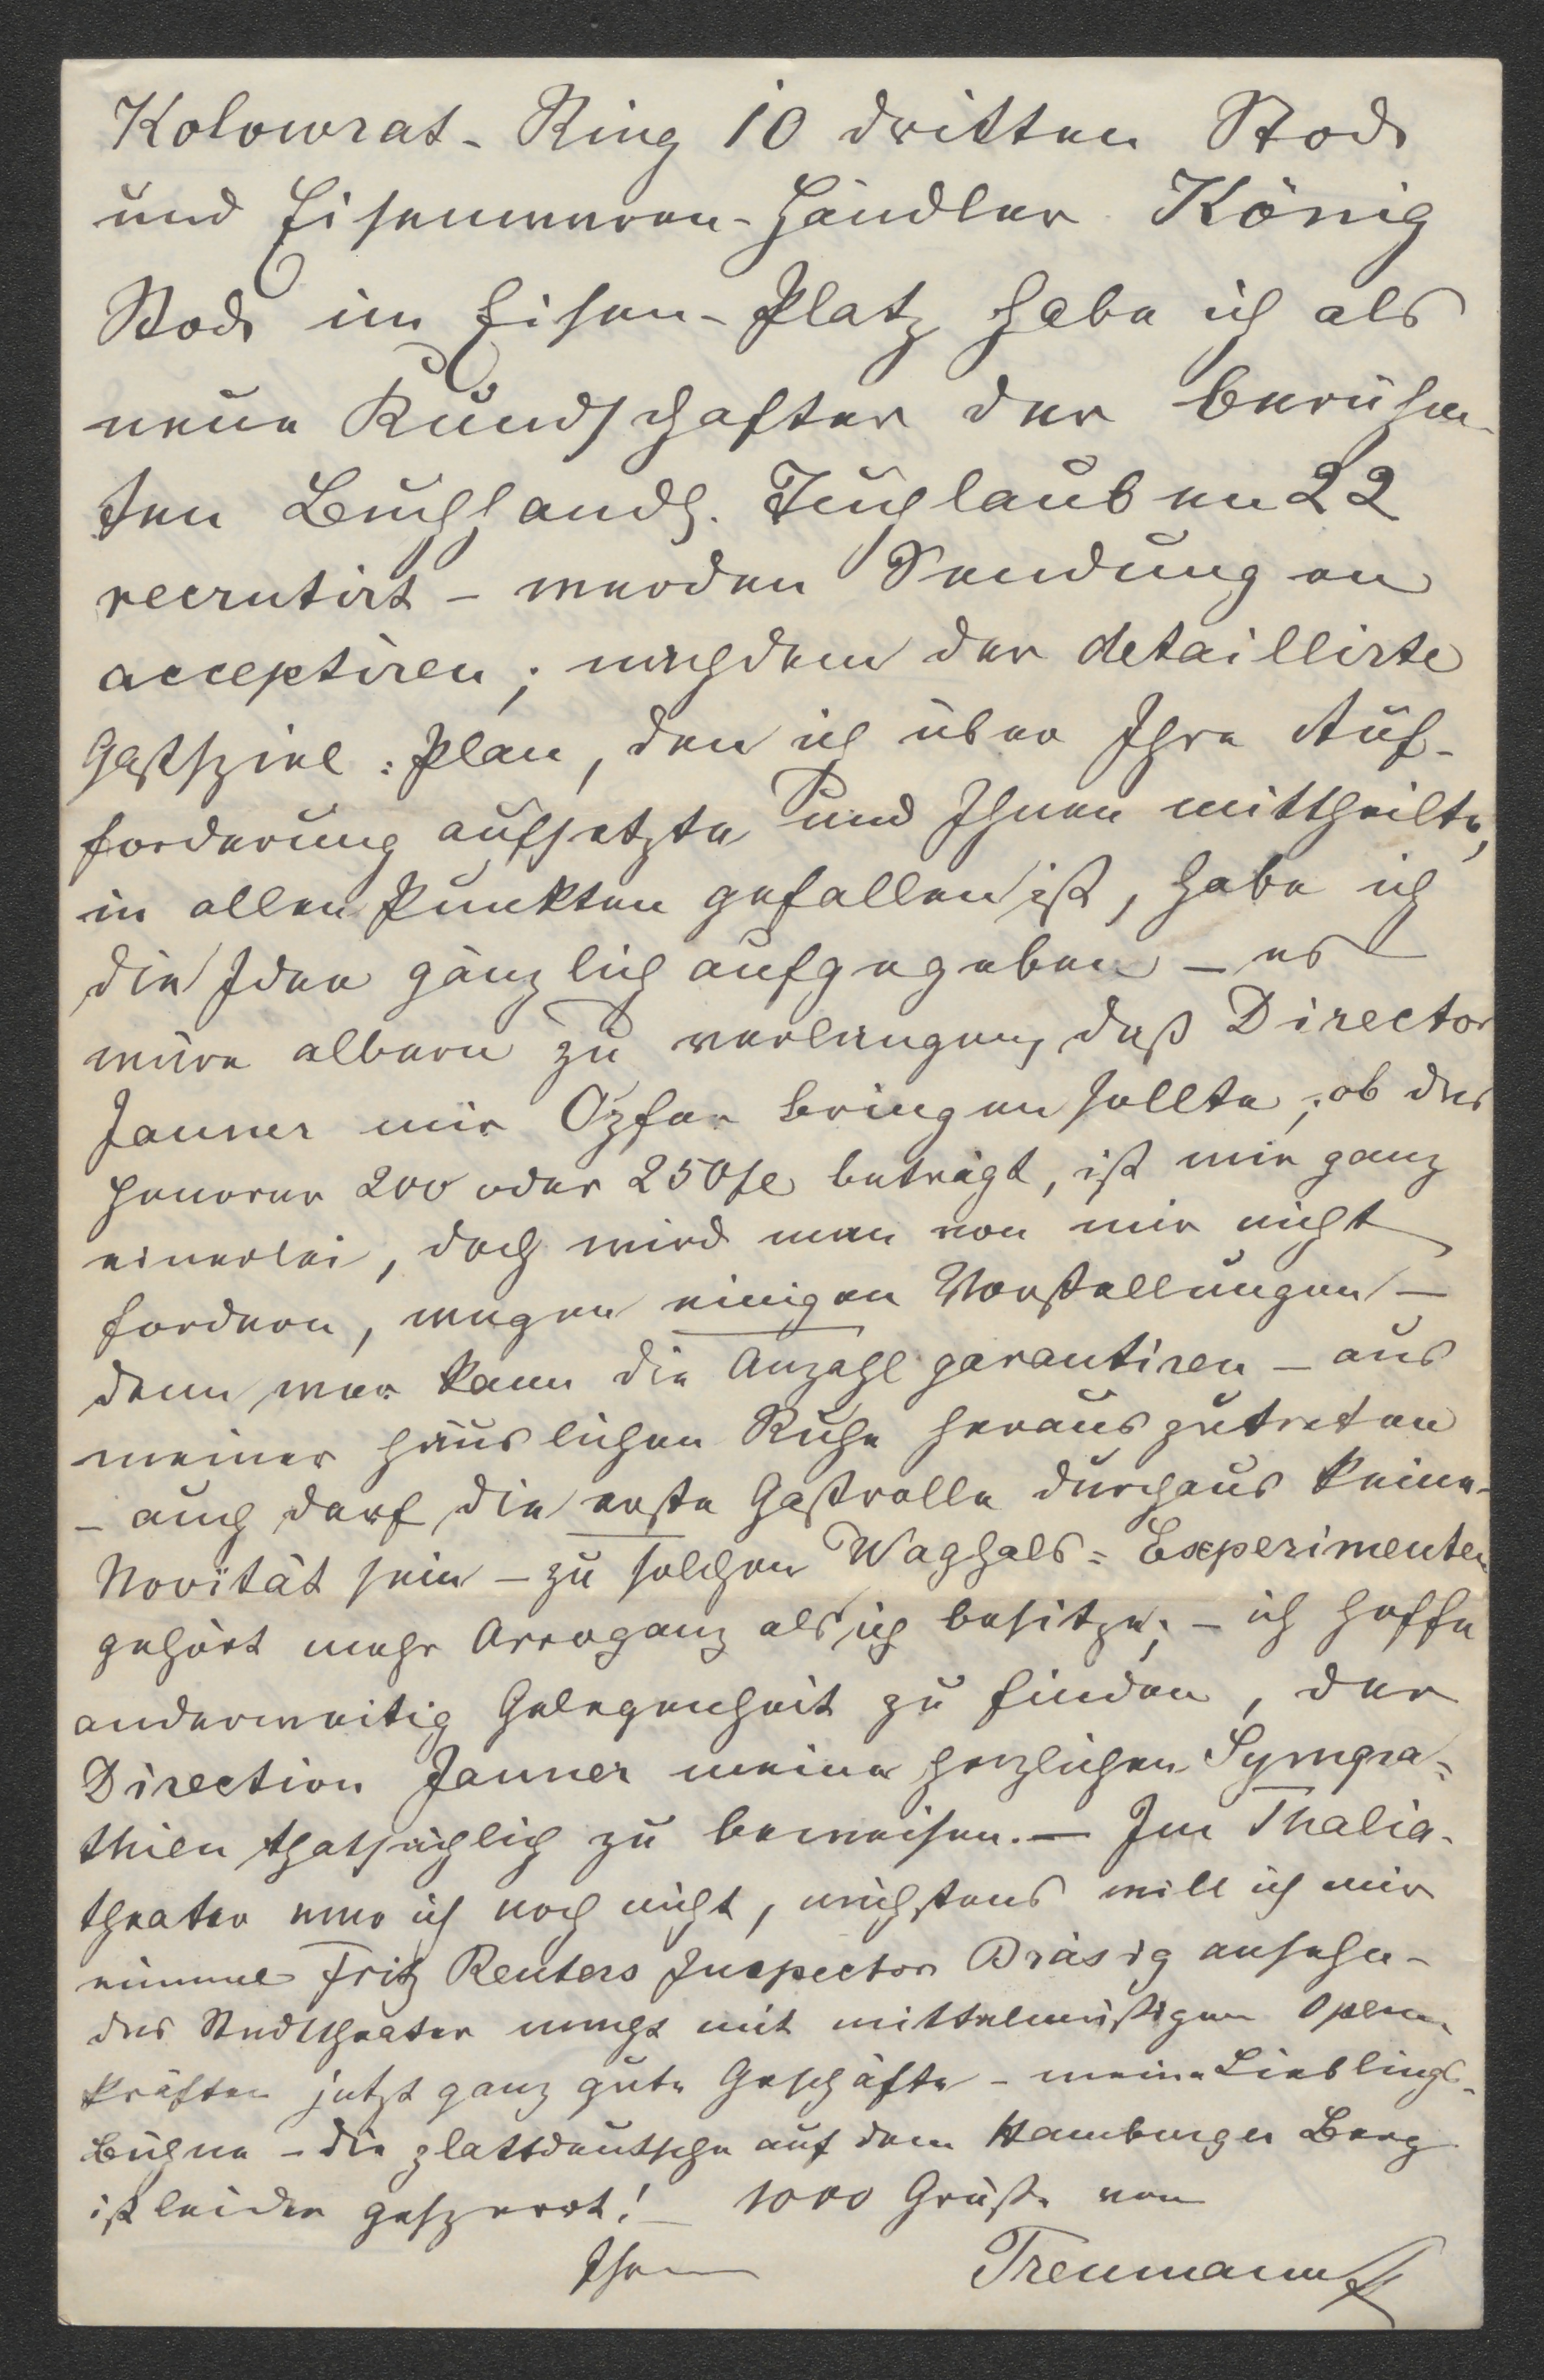 Kolowrat-Ring 10 dritten Stock
und Eisenwaren-Händler König
Stock im Eisen-Platz habe ich als
neue Kundschafter der berühm-
ten Buchhandlg. Tuchlauben 22
recrutirt – werden Sendungen
acceptiren; nachdem der detaillirte
Gastspiel=Plan, den ich über Ihre Auf-
forderung aufsetzte und Ihnen mittheilte,
in allen Punkten gefallen ist, habe ich
die Idee gänzlich aufgegeben – es
wäre albern zu verlangen, daß Director
Jauner mir Opfer bringen sollte; ob das
Honorar 200 oder 250 fl beträgt, ist mir ganz
einerlei, doch wird man von mir nicht
fordern, wegen einigen Vorstellungen –
denn wer kann die Anzahl garantiren – aus
meiner häuslichen Ruhe herauszutreten
– auch darf die erste Gastrolle durchaus keine
Novität sein – zu solchen Waghals=Experimenten
gehört mehr Arroganz als ich besitze; – ich hoffe
anderweitig Gelegenheit zu finden, der
Direction Jauner meine herzlichen Sympa=
thien thatsächlich zu beweisen. – Im Thalia-
theater war ich noch nicht, nächstens will ich mir
einmal Fritz Reuters Inspector Bräsig ansehen –
das Stadttheater macht mit mittelmäßigen Opern-
kräften jetzt ganz gute Geschäfte – meine Lieblings-
bühne – die plattdeutsche auf dem Hamburger Berg
ist leider gesperrt! – 1000 Grüße von
Ihrem Treumann